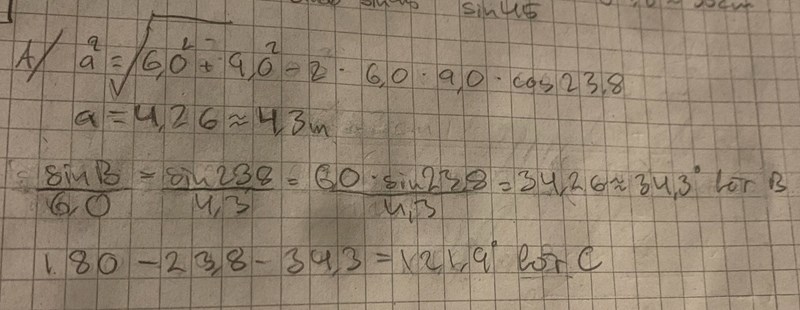 sin45
A/ a² = √6,0² + 9,0² - 2 · 6,0 · 9,0 · cos23,8
a = 4,26 ≈ 4,3m
sinB/6,0 = sin238/4,3 = 60 · sin23,8/4,3 = 34,26 ≈ 34,3° för B
180 - 23,8 - 34,3 = 121,9° för C